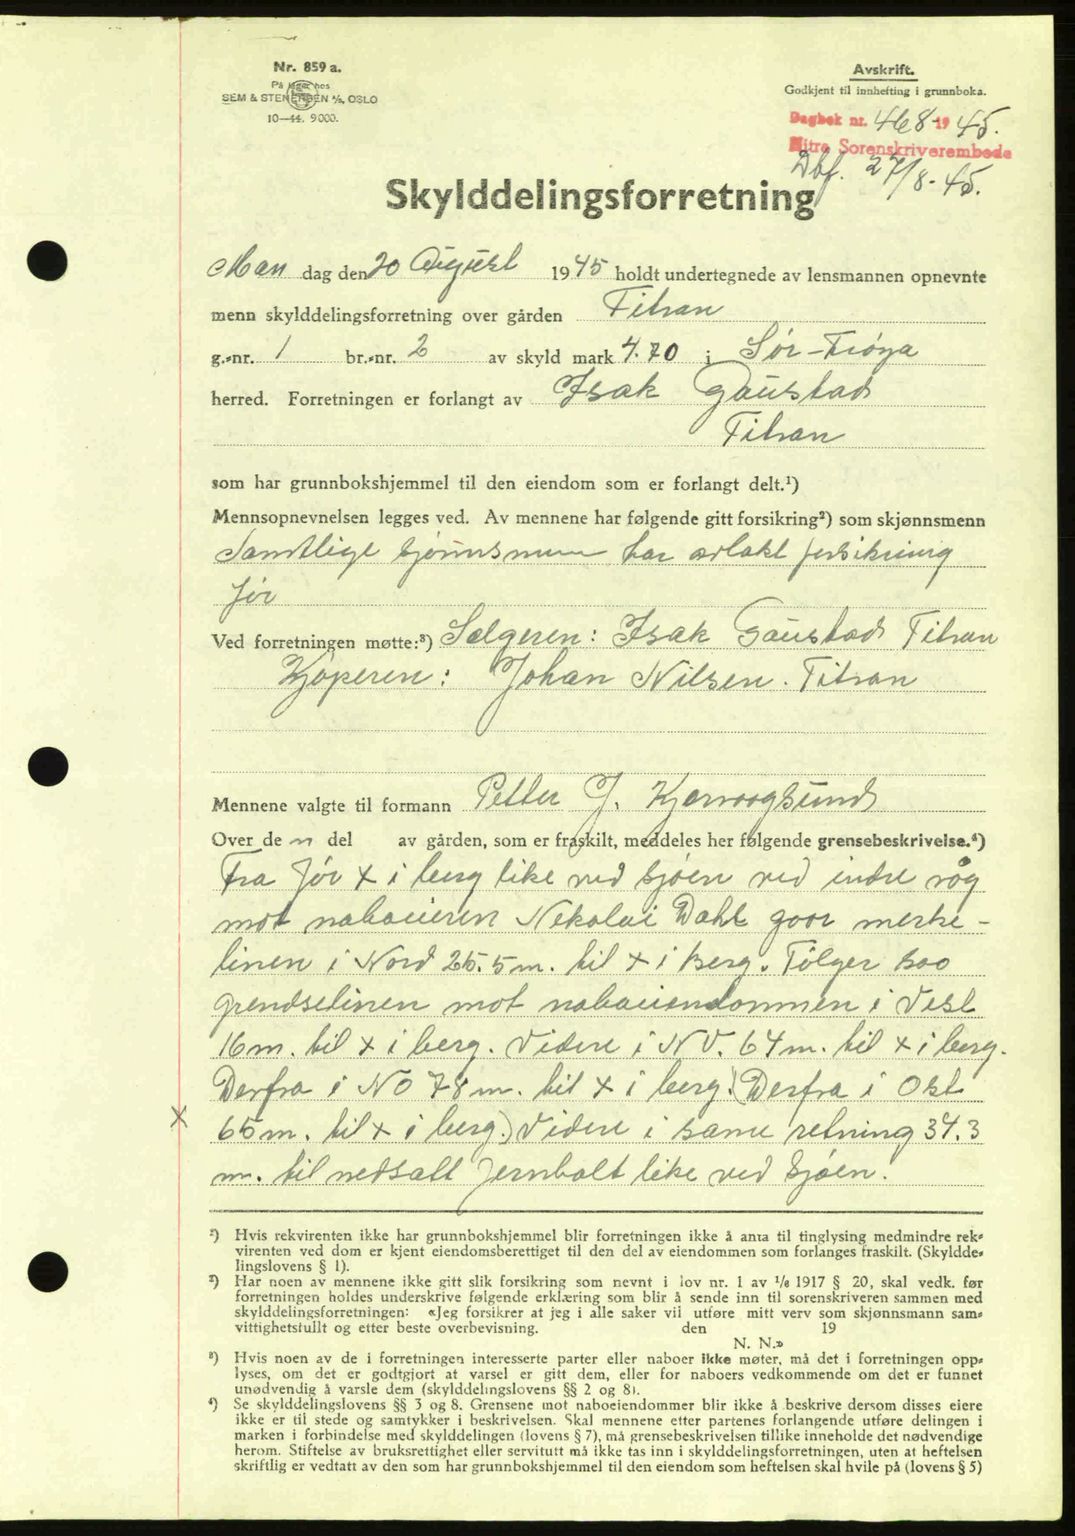 Nr. 859 a.
På lager hos
SEM & STENERSEN A/S, OSLO
10—44. 9000.
Avskrift.
Godkjent til innhefting i grunnboka.
Dagbok nr. 468 1945.
Hitra Sorenskriverembede
Dbf. 27/8-45.
Skylddelingsforretning
Man dag den 20 August 1945 holdt undertegnede av lensmannen opnevnte
menn skylddelingsforretning over gården Titran
g.-nr. 1 br.-nr. 2 av skyld mark 4.70 i Sør-Frøya
herred. Forretningen er forlangt av Isak Gaustad
Titran
som har grunnbokshjemmel til den eiendom som er forlangt delt.¹)
Mennsopnevnelsen legges ved. Av mennene har følgende gitt forsikring²) som skjønnsmenn
Samtlige har avlakt forsikring
før
Ved forretningen møtte:³) Selgeren: Isak Gaustad Titran
Kjøperen: Johan Nilsen. Titran
Mennene valgte til formann Petter J.
Over de n del av gården, som er fraskilt, meddeles her følgende grensebeskrivelse.⁴)
Fra før x i berg like ved sjøen ved indre
mot naboeieren Nekolai Dahl goor merke-
linen i Nord 25.5 m. til x i berg. Følger soo
grendselinen mot naboeiendommen i Vest
16 m. til x i berg. Videre i NV. 64 m. til x i berg.
Derfra i NO 78 m. til x i berg. (Derfra i Ost
x 65 m. til x i berg.) Videre i same retning 34.3
m. til nedsatt Jernbolt like ved sjøen.
¹) Hvis rekvirenten ikke har grunnbokshjemmel blir forretningen ikke å anta til tinglysing medmindre rek-
virenten ved dom er kjent eiendomsberettiget til den del av eiendommen som forlanges fraskilt. (Skyldde-
lingslovens § 1).
²) Har noen av mennene ikke gitt slik forsikring som nevnt i lov nr. 1 av 1/6 1917 § 20, skal vedk. før
forretningen holdes underskrive følgende erklæring som blir å sende inn til sorenskriveren sammen med
skylddelingsforretningen: «Jeg forsikrer at jeg i alle saker vil utføre mitt verv som skjønnsmann sam-
vittighetsfullt og etter beste overbevisning. den 19
N. N.»
³) Hvis noen av de i forretningen interesserte parter eller naboer ikke møter, må det i forretningen opp-
lyses, om det er godtgjort at varsel er gitt dem, eller for naboers vedkommende om det er funnet
unødvendig å varsle dem (skylddelingslovens §§ 2 og 8).
⁴) Se skylddelingslovens §§ 3 og 8. Grensene mot naboeiendommer blir ikke å beskrive dersom disses eiere
ikke er til stede og samtykker i beskrivelsen. Skal mennene etter partenes forlangende utføre delingen i
marken i forbindelse med skylddelingen (lovens § 7), må grensebeskrivelsen tillike inneholde det nødvendige
herom. Stiftelse av bruksrettighet eller servitutt må ikke tas inn i skylddelingsforretningen, uten at heftelsen
skriftlig er vedtatt av den som har grunnbokshjemmel til den eiendom som heftelsen skal hvile på (lovens § 5)